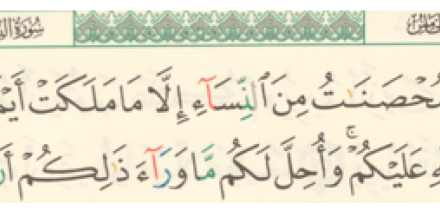 سُورَةُ
مُحْصَنَٰتُ مِنَ ٱلنِّسَآءِ إِلَّا مَا مَلَكَتْ أَيْمَ
عَلَيْكُمْۚ وَأُحِلَّ لَكُم مَّا وَرَآءَ ذَٰلِكُمْ أَن